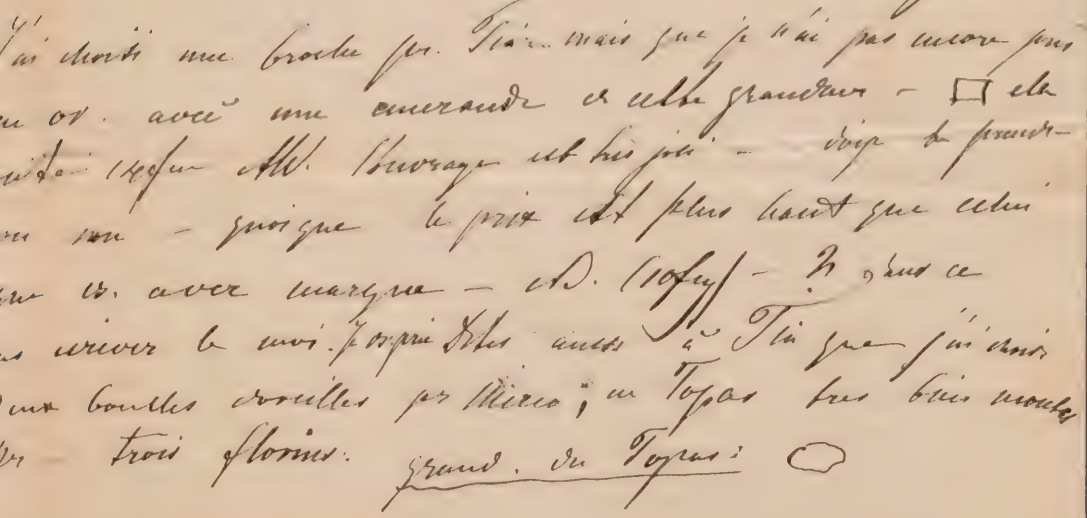 J'ai choisi une broche pr. Tia mais que je n'ai pas encore pris
en or. avec une emeraude de cette grandeur - ela
l'ouvrage est très joli - dois la prendre
ou non - quoique le prix est plus haut que celui
que vs. avez marque - - ? dans ce
ecrivez le moi. Dites aussi à Tia que j'ai choisi
deux boucles d'oreilles pr en Topas tres bien montes
trois florins. grand. du Topas: